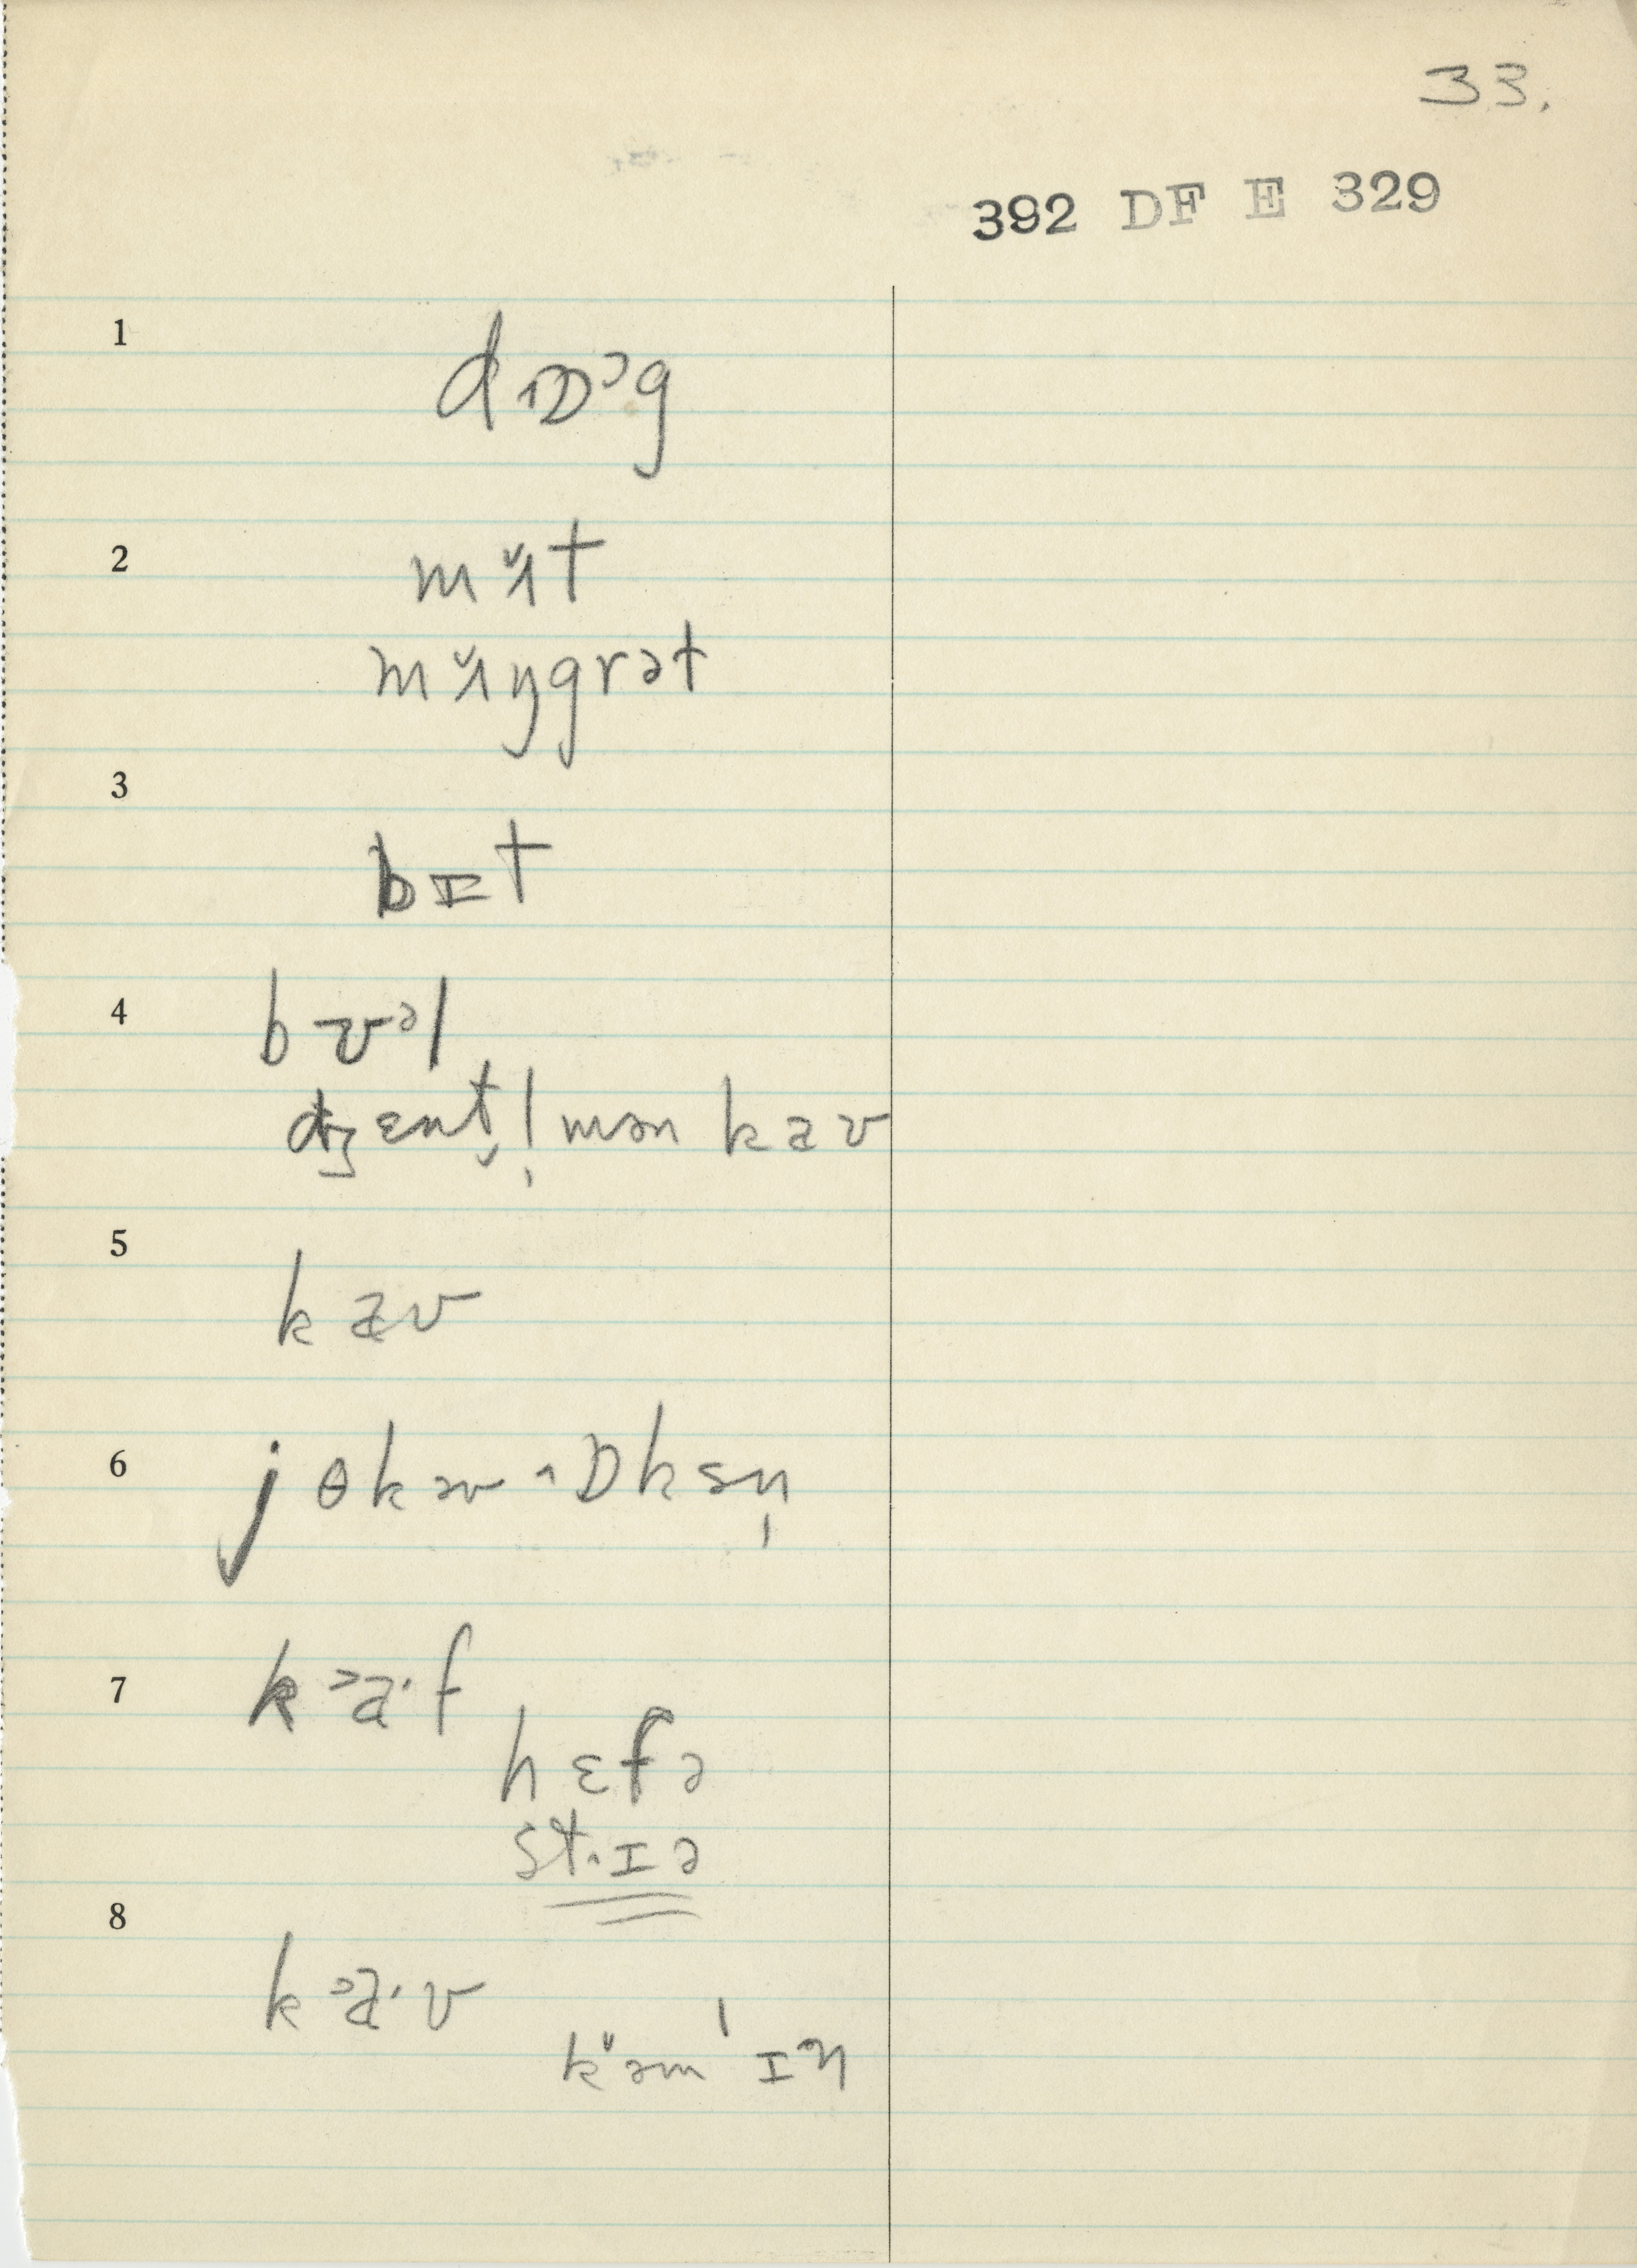 33.
392 DF E 329
1
dɒɔg
2
mʌ̆t
mʌ̆ŋgrət
3
bɪt
4
bʊəl
dʒɛnt̬l̩mən kaʊ
5
kaʊ
6
j θkəʊ ɒksn̩
7
kᵊa·f
hɛfə
stɪə
8
kᵊa·v
kə̆m'ɪŋ